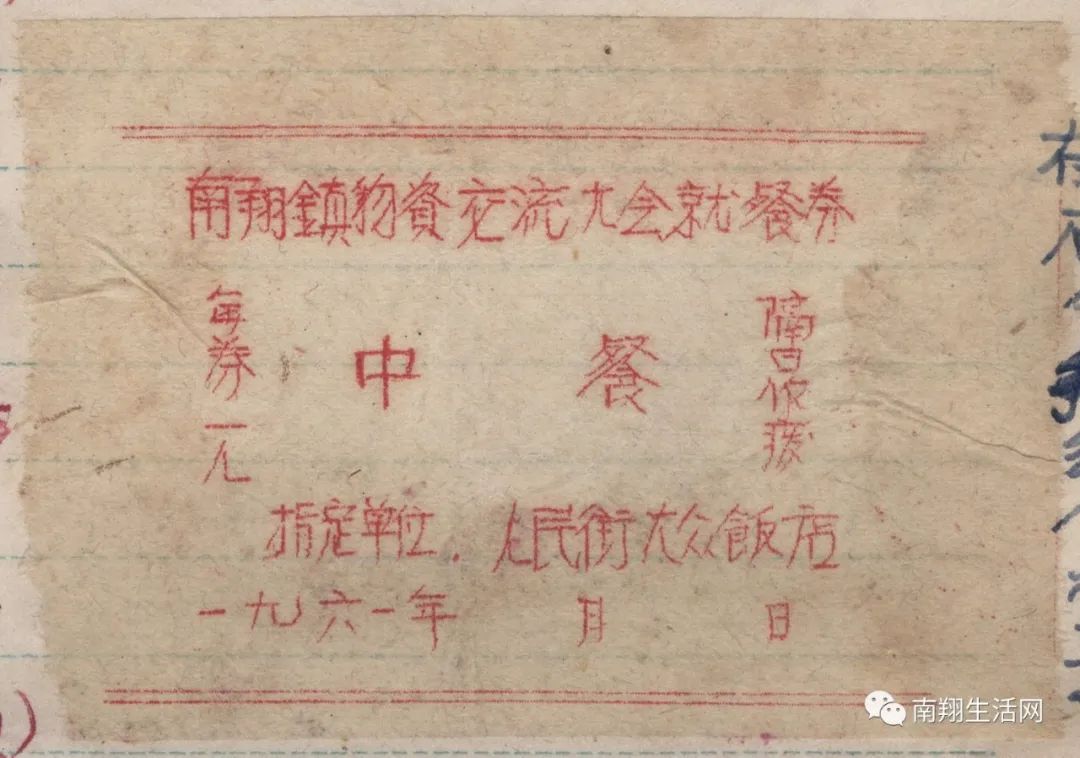 南翔鎮物資交流大会就餐券
每券一人
中 餐
隔日作廢
指定单位.人民街大众飯店
一九六一年 月 日
南翔生活网